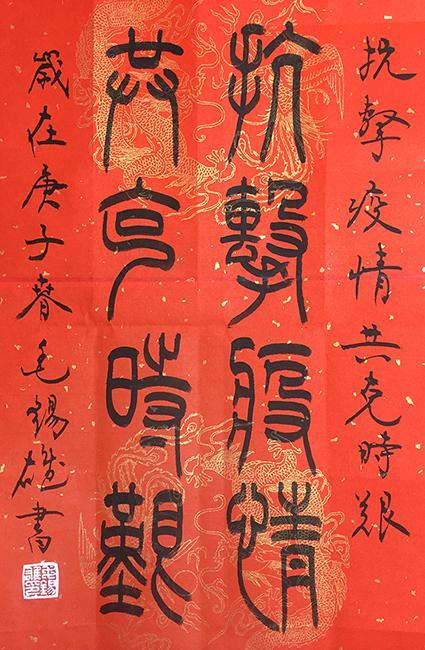 抗擊疫情共克時艱
抗擊疫情
共克時艱
歲在庚子春毛錫雄書